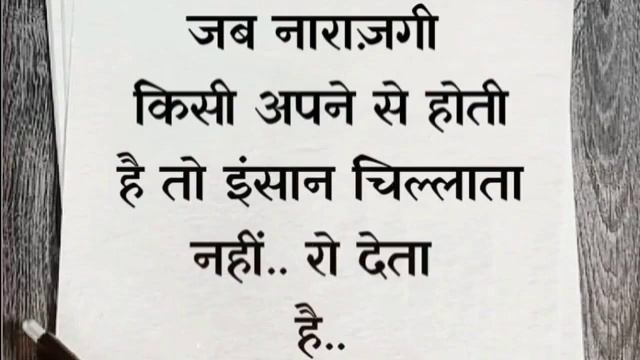 जब नाराज़गी
किसी अपने से होती
है तो इंसान चिल्लाता
नहीं.. रो देता
है..